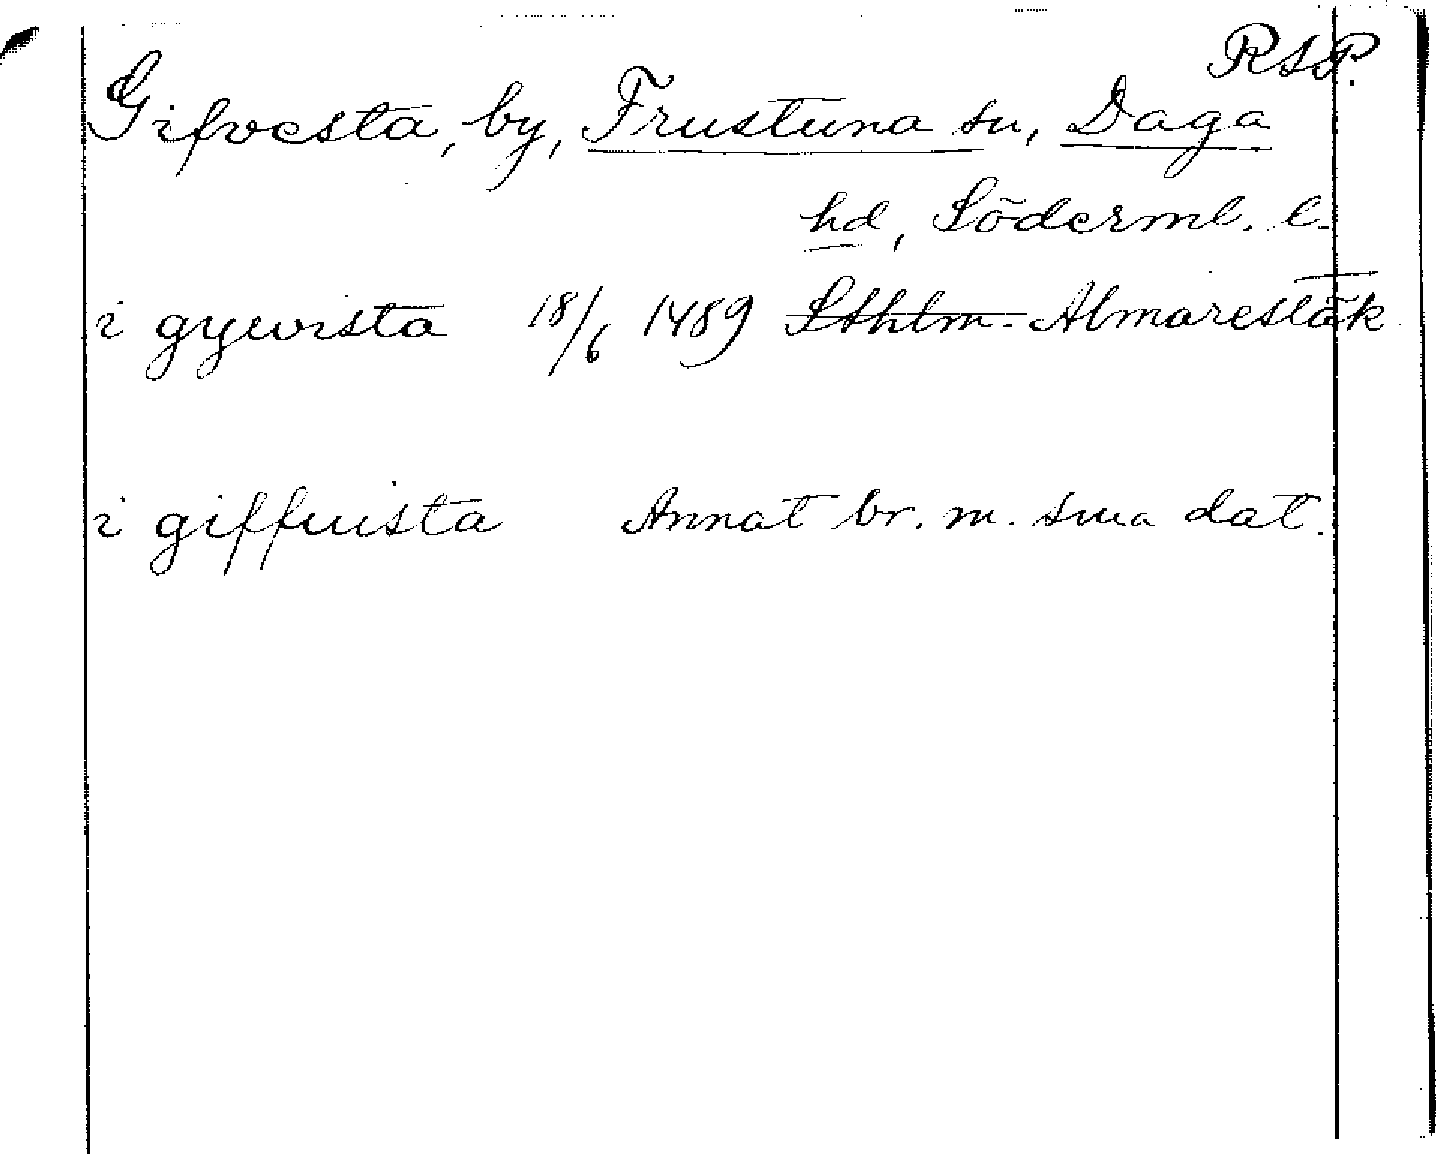 RAP.
Gifvesta, by, Frustuna sn, Daga
hd, Söderml. l.
i gyewista 18/6 1489 Sthlm. Almarestäk
i giffuista Annat br. m. sma dat.